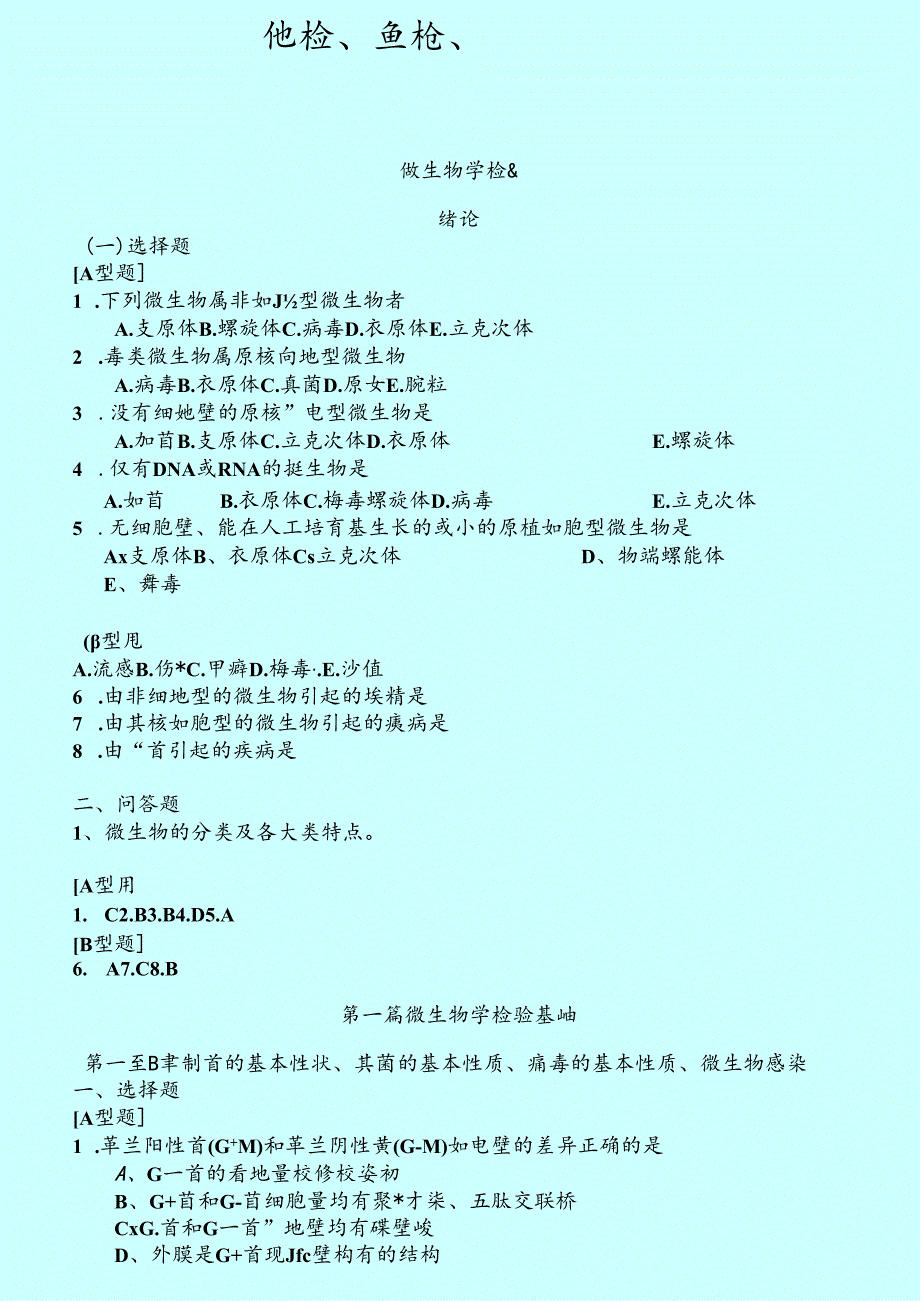 他检、鱼枪、
做生物学检&
绪论
(一)选择题
[A型题]
1 .下列微生物属非如J½型微生物者
A.支原体B.螺旋体C.病毒D.衣原体E.立克次体
2 .毒类微生物属原核向地型微生物
A.病毒B.衣原体C.真菌D.原女E.腕粒
3 .没有细她壁的原核”电型微生物是
A.加首B.支原体C.立克次体D.衣原体 E.螺旋体
4 .仅有DNA或RNA的挺生物是
A.如首 B.衣原体C.梅毒螺旋体D.病毒 E.立克次体
5 .无细胞壁、能在人工培育基生长的或小的原植如胞型微生物是
Ax支原体B、衣原体Cs立克次体 D、物端螺能体
E、舞毒
(β型甩
A.流感B.伤*C.甲癣D.梅毒·.E.沙值
6 .由非细地型的微生物引起的埃精是
7 .由其核如胞型的微生物引起的痍病是
8 .由“首引起的疾病是
二、问答题
1、微生物的分类及各大类特点。
[A型用
1. C2.B3.B4.D5.A
[B型题]
6. A7.C8.B
第一篇微生物学检验基岫
第一至B聿制首的基本性状、其菌的基本性质、痛毒的基本性质、微生物感染
一、选择题
[A型题]
1 .革兰阳性首(G⁺M)和革兰阴性黄(G-M)如电壁的差异正确的是
A、G一首的看地量校修校姿初
B、G+苜和G-首细胞量均有聚*才柒、五肽交联桥
CxG.首和G一首”地壁均有碟壁峻
D、外膜是G+首现Jfc壁构有的结构